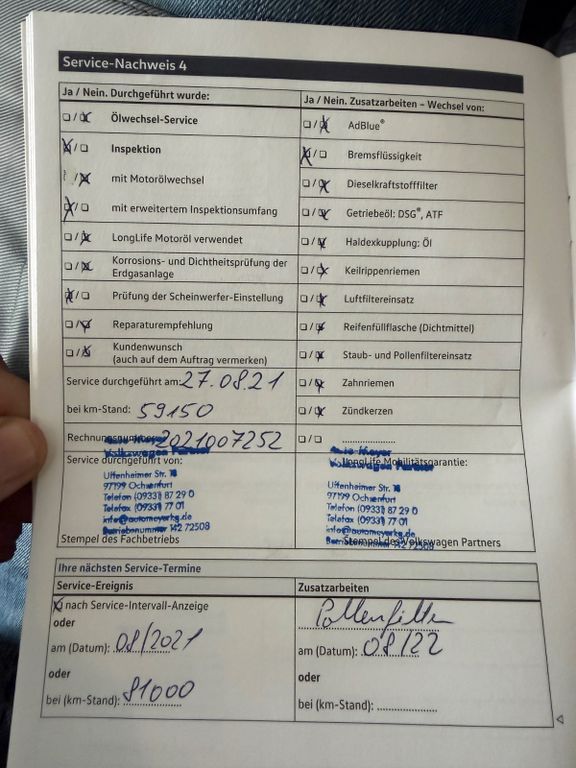 Service-Nachweis 4
Ja / Nein. Durchgeführt wurde:
Ölwechsel-Service
Inspektion
mit Motorölwechsel
mit erweitertem Inspektionsumfang
LongLife Motoröl verwendet
Korrosions- und Dichtheitsprüfung der
Erdgasanlage
Prüfung der Scheinwerfer-Einstellung
Reparaturempfehlung
Kundenwunsch
(auch auf dem Auftrag vermerken)
Service durchgeführt am: 27.08.21
bei km-Stand: 59150
Rechnungsnummer: 2021007252
Ja / Nein. Zusatzarbeiten – Wechsel von:
AdBlue®
Bremsflüssigkeit
Dieselkraftstofffilter
Getriebeöl: DSG®, ATF
Haldexkupplung: Öl
Keilrippenriemen
Luftfiltereinsatz
Reifenfüllflasche (Dichtmittel)
Staub- und Pollenfiltereinsatz
Zahnriemen
Zündkerzen
Service durchgeführt von:
Auto Meyer
Volkswagen Partner
Uffenheimer Str.
97199 Ochsenfurt
Telefon (09331) 87 29 0
Telefax (09331) 77 01
info@automeyerkg.de
Betriebsnummer 142 72508
Stempel des Fachbetriebs
LongLife Mobilitätsgarantie:
Auto Meyer
Volkswagen Partner
Uffenheimer Str.
97199 Ochsenfurt
Telefon (09331) 87 29 0
Telefax (09331) 77 01
info@automeyerkg.de
Betriebsnummer 142 72508
Stempel des Volkswagen Partners
Ihre nächsten Service-Termine
Service-Ereignis
nach Service-Intervall-Anzeige
oder
am (Datum): 08/2021
oder
bei (km-Stand): 81000
Zusatzarbeiten
Pollenfilter
am (Datum): 08/22
oder
bei (km-Stand):